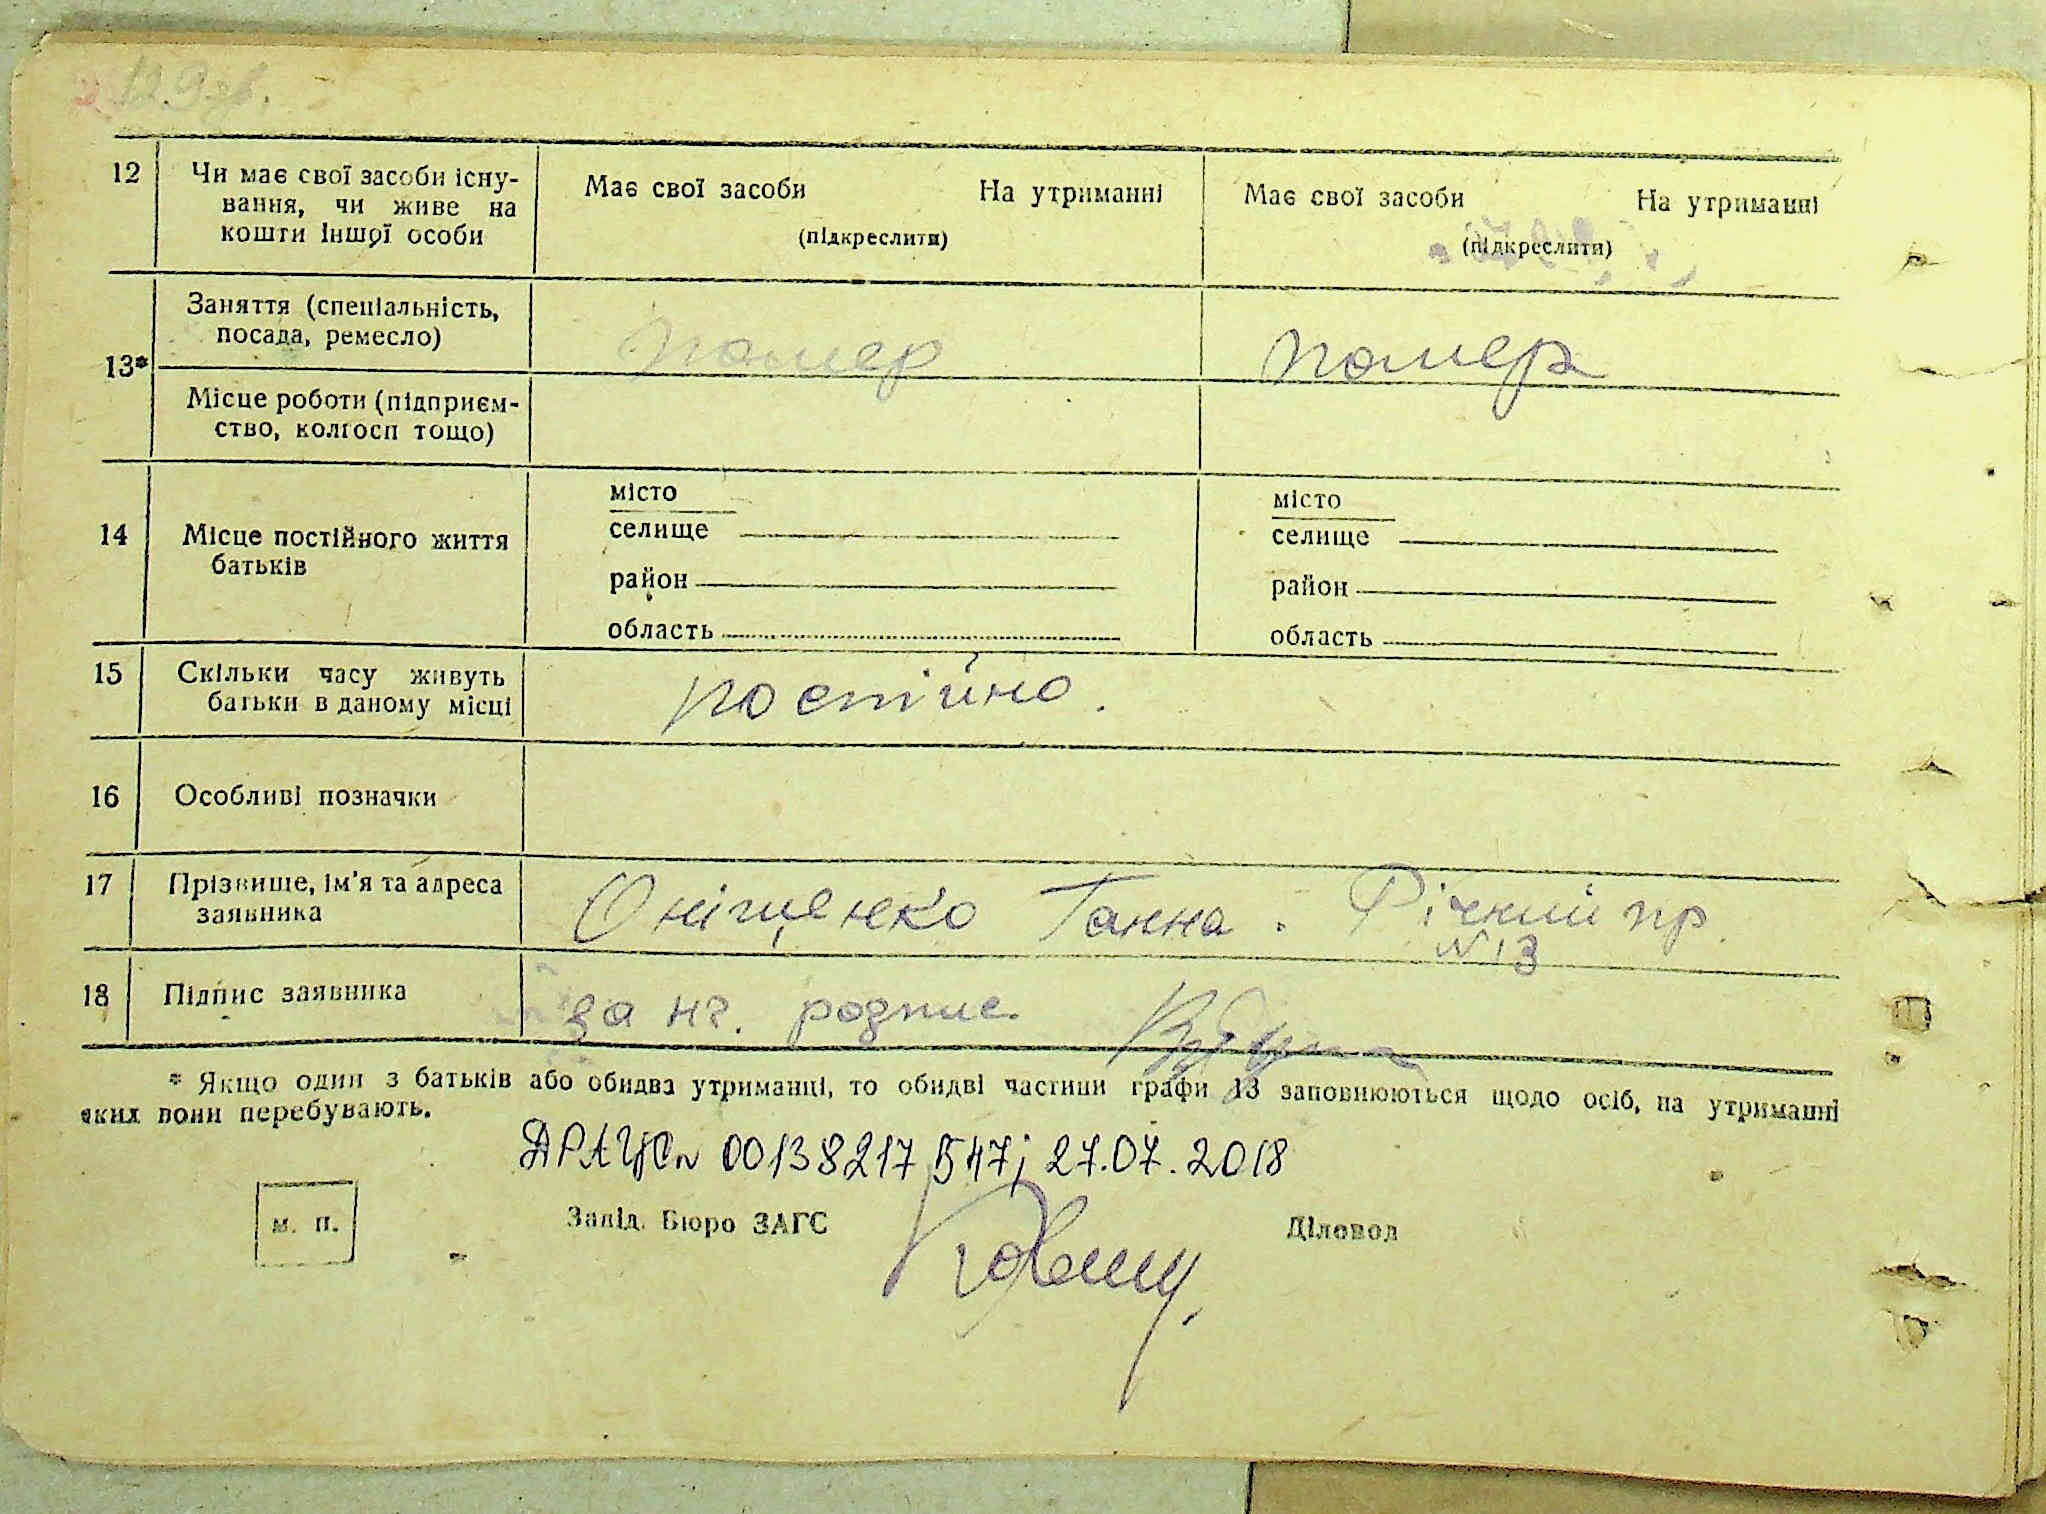 12 Чи має свої засоби існу-
вання, чи живе на
кошти іншої особи
Має свої засоби На утриманні
(підкреслити)
Має свої засоби На утриманні
(підкреслити)
13* Заняття (спеціальність,
посада, ремесло)
помер
помер
Місце роботи (підприєм-
ство, колгосп тощо)
14 Місце постійного життя
батьків
місто
селище
район
область
місто
селище
район
область
15 Скільки часу живуть
батьки в даному місці
постійно.
16 Особливі позначки
17 Прізвище, ім'я та адреса
заявника
Оніщенко Ганна. Річний пр
№13
18 Підпис заявника
за нг. родпис
* Якщо один з батьків або обидва утриманці, то обидві частини графи 13 заповнюються щодо осіб, на утриманні
яких вони перебувають.
ДРАЦСл 00138217547; 27.07.2018
м. п.
Завід. Бюро ЗАГС
Діловод